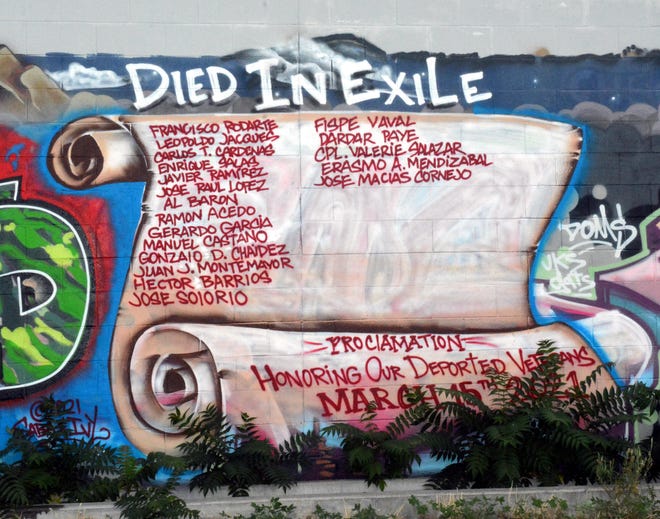 DIED IN EXILE
FRANCISCO RODARTE
LEOPOLDO JACQUES
CARLOS T. CARDENAS
ENRIQUE SALAS
JAVIER RAMIREZ
JOSE RAUL LOPEZ
AL BARON
RAMON ACEDO
GERARDO GARCIA
MANUEL CASTANO
GONZALO D. CHAIDEZ
JUAN J. MONTEMAYOR
HECTOR BARRIOS
JOSE SOLORIO
FISPE VAVAL
DARDAR PAYE
CPL. VALERIE SALAZAR
ERASMO A. MENDIZABAL
JOSE MACIAS CORNEJO
PROCLAMATION
HONORING OUR DEPORTED VETERANS
MARCH 15TH 2021
DOMS
UKS
©2021